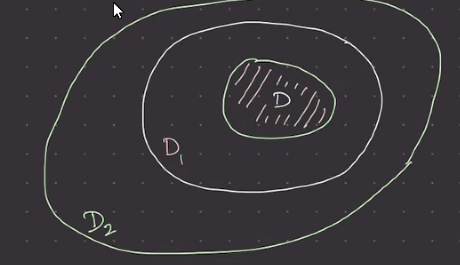 D
D₁
D₂